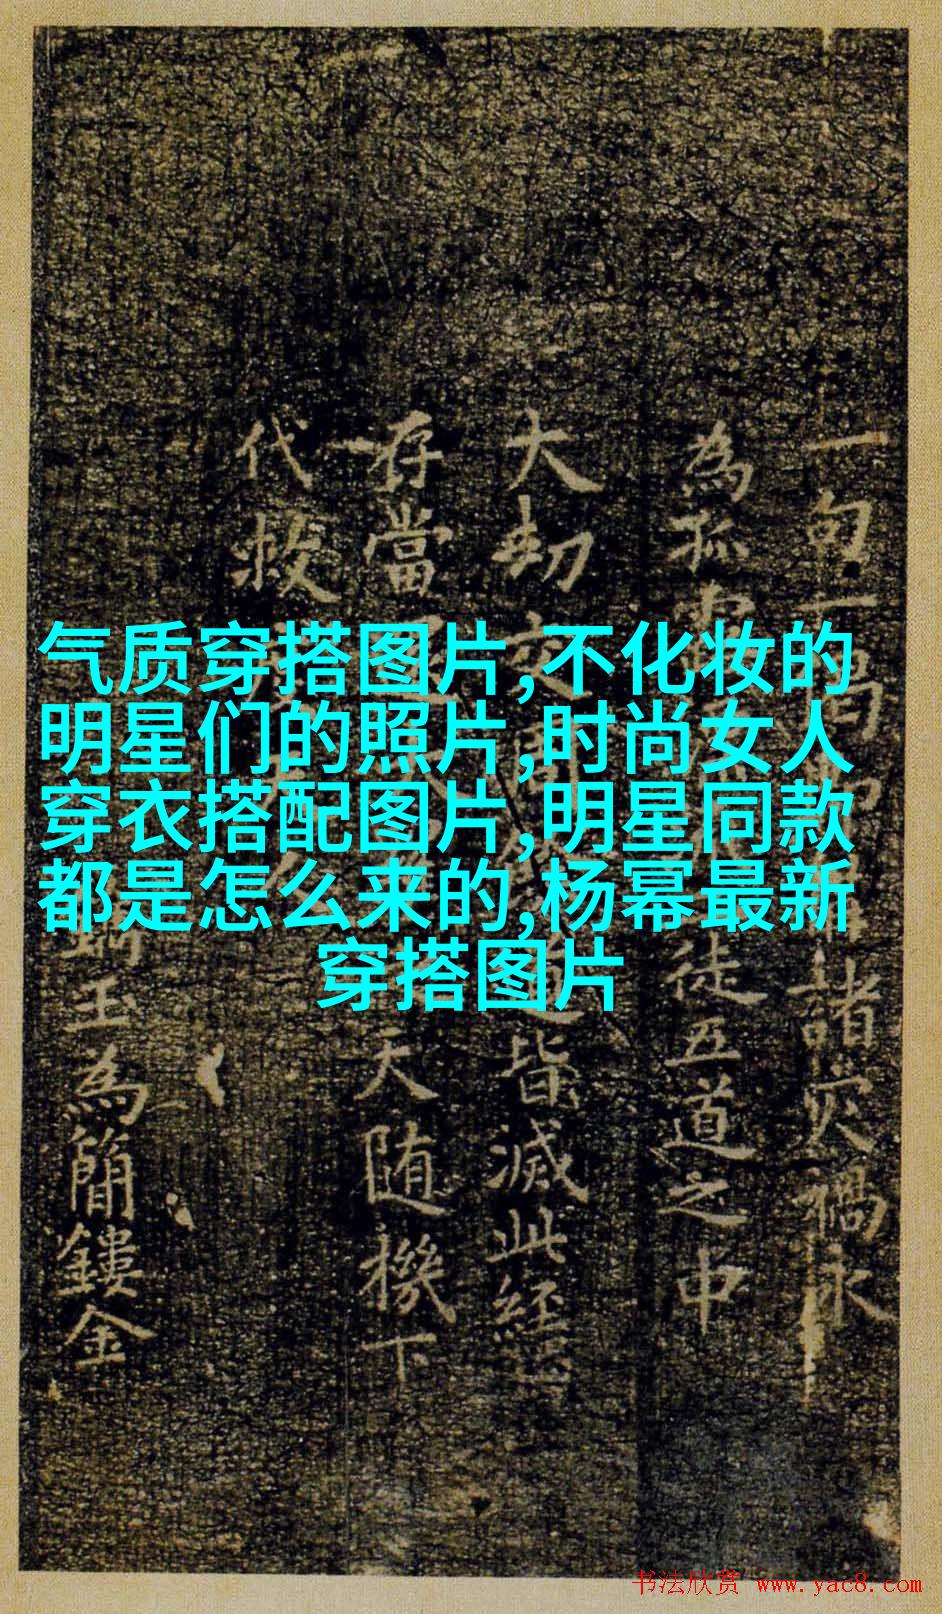 气质穿搭图片,不化妆的
明星们的照片,时尚女人
穿衣搭配图片,明星同款
都是怎么来的,杨幂最新
穿搭图片
一句一
諸灾禍永
為孤
徒五道之中
大劫交
皆滅此經
存當
天随機下
代救
玉為簡鏤金
书法欣赏 www.yac8.com